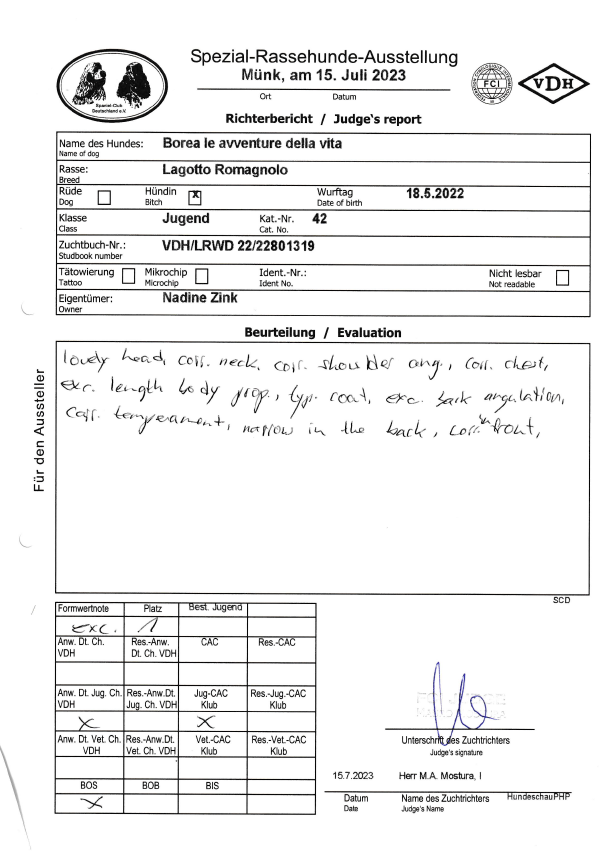 Spezial-Rassehunde-Ausstellung
Münk, am 15. Juli 2023
Ort Datum
Spaniel-Club
Deutschland e.V.
FCI
VDH
Richterbericht / Judge's report
Name des Hundes: Borea le avventure della vita
Name of dog
Rasse: Lagotto Romagnolo
Breed
Rüde Hündin X Wurftag 18.5.2022
Dog Bitch Date of birth
Klasse Jugend Kat.-Nr. 42
Class Cat. No.
Zuchtbuch-Nr.: VDH/LRWD 22/22801319
Studbook number
Tätowierung Mikrochip Ident.-Nr.: Nicht lesbar
Tattoo Microchip Ident No. Not readable
Eigentümer: Nadine Zink
Owner
Beurteilung / Evaluation
Für den Aussteller
lovely head, corr. neck, corr. shoulder ang., corr. chest,
exc. length body prop., typ. coat, exc. back angulation,
corr. temperament, narrow in the back, corr. in front,
SCD
Formwertnote Platz Best. Jugend
exc. 1
Anw. Dt. Ch. Res.-Anw. CAC Res.-CAC
VDH Dt. Ch. VDH
Anw. Dt. Jug. Ch. Res.-Anw.Dt. Jug-CAC Res.-Jug.-CAC
VDH Jug. Ch. VDH Klub Klub
X X
Anw. Dt. Vet. Ch. Res.-Anw. Dt. Vet.-CAC Res.-Vet.-CAC
VDH Vet. Ch. VDH Klub Klub
BOS BOB BIS
X
Unterschrift des Zuchtrichters
Judge's signature
15.7.2023 Herr M.A. Mostura, I
Datum Name des Zuchtrichters HundeschauPHP
Date Judge's Name